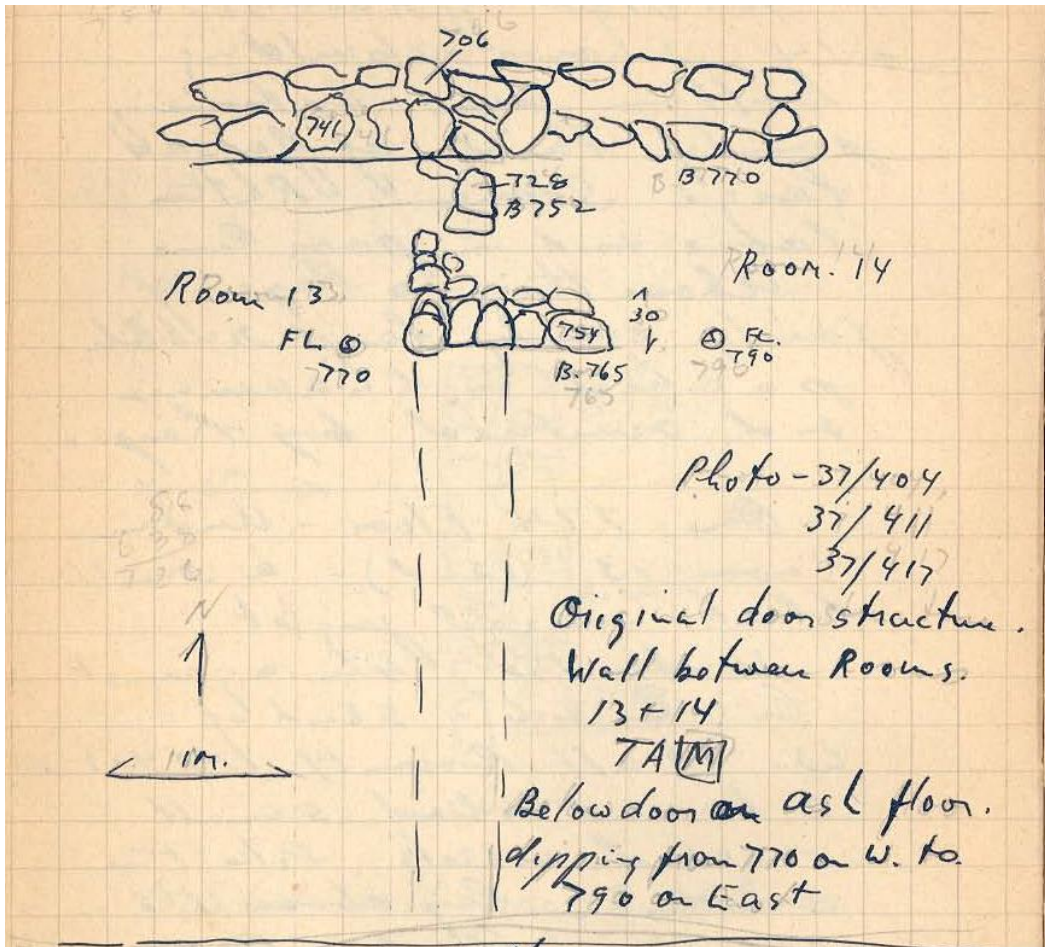 706
741
B 770
728
B 752
Room 13
Room. 14
30
FL
770
754
B. 765
FL.
790
Photo - 37/404
37/411
37/417
Original door structure.
Wall between Rooms.
13 + 14
TA M
N
1M.
Below door an ash floor.
dipping from 770 on W. to.
790 on East